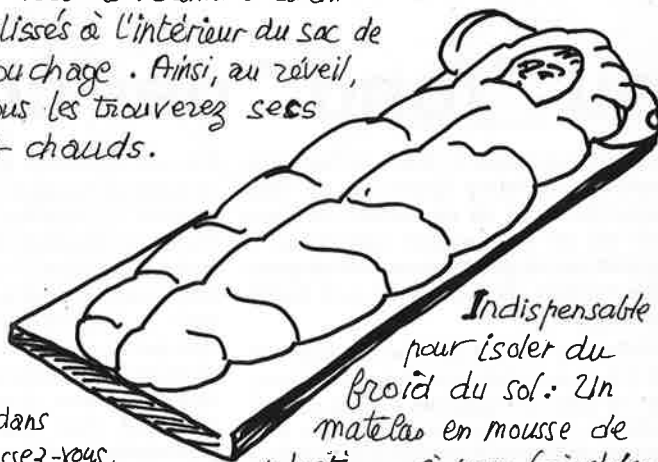 lissés à l'intérieur du sac de
ouchage. Ainsi, au réveil,
ous les trouverez secs
chauds.
Indispensable
pour isoler du
froid du sol: Un
matelas en mousse de
dans
ssez-vous,